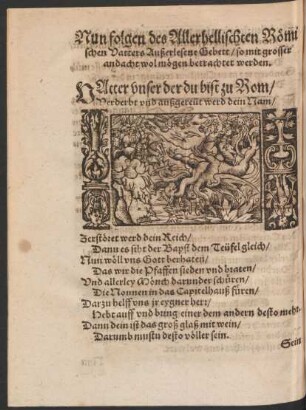 Nun folgen des Allerhellischten Römi
schen Vatters Außerlesene Gebett/ so mit grosser
andacht wol mögen betrachtet werden.
VAtter vnser der du bist zu Rom/
Verderbt vnd außgereüt werd dein Nam/
Zerstöret werd dein Reich/
Dann es siht der Bapst dem Teüfel gleich/
Nun wöll vns Gott berhaten/
Das wir die Pfaffen sieden vnd braten/
Vnd allerley Mönch darunder schüren/
Die Nonnen in das Capitelhauß füren/
Darzu helff vns jr eygner herr/
Hebt auff vnd bring einer dem andern desto mehr.
Dann dein ist das groß glaß mit wein/
Darumb mustu desto völler sein.
Sein